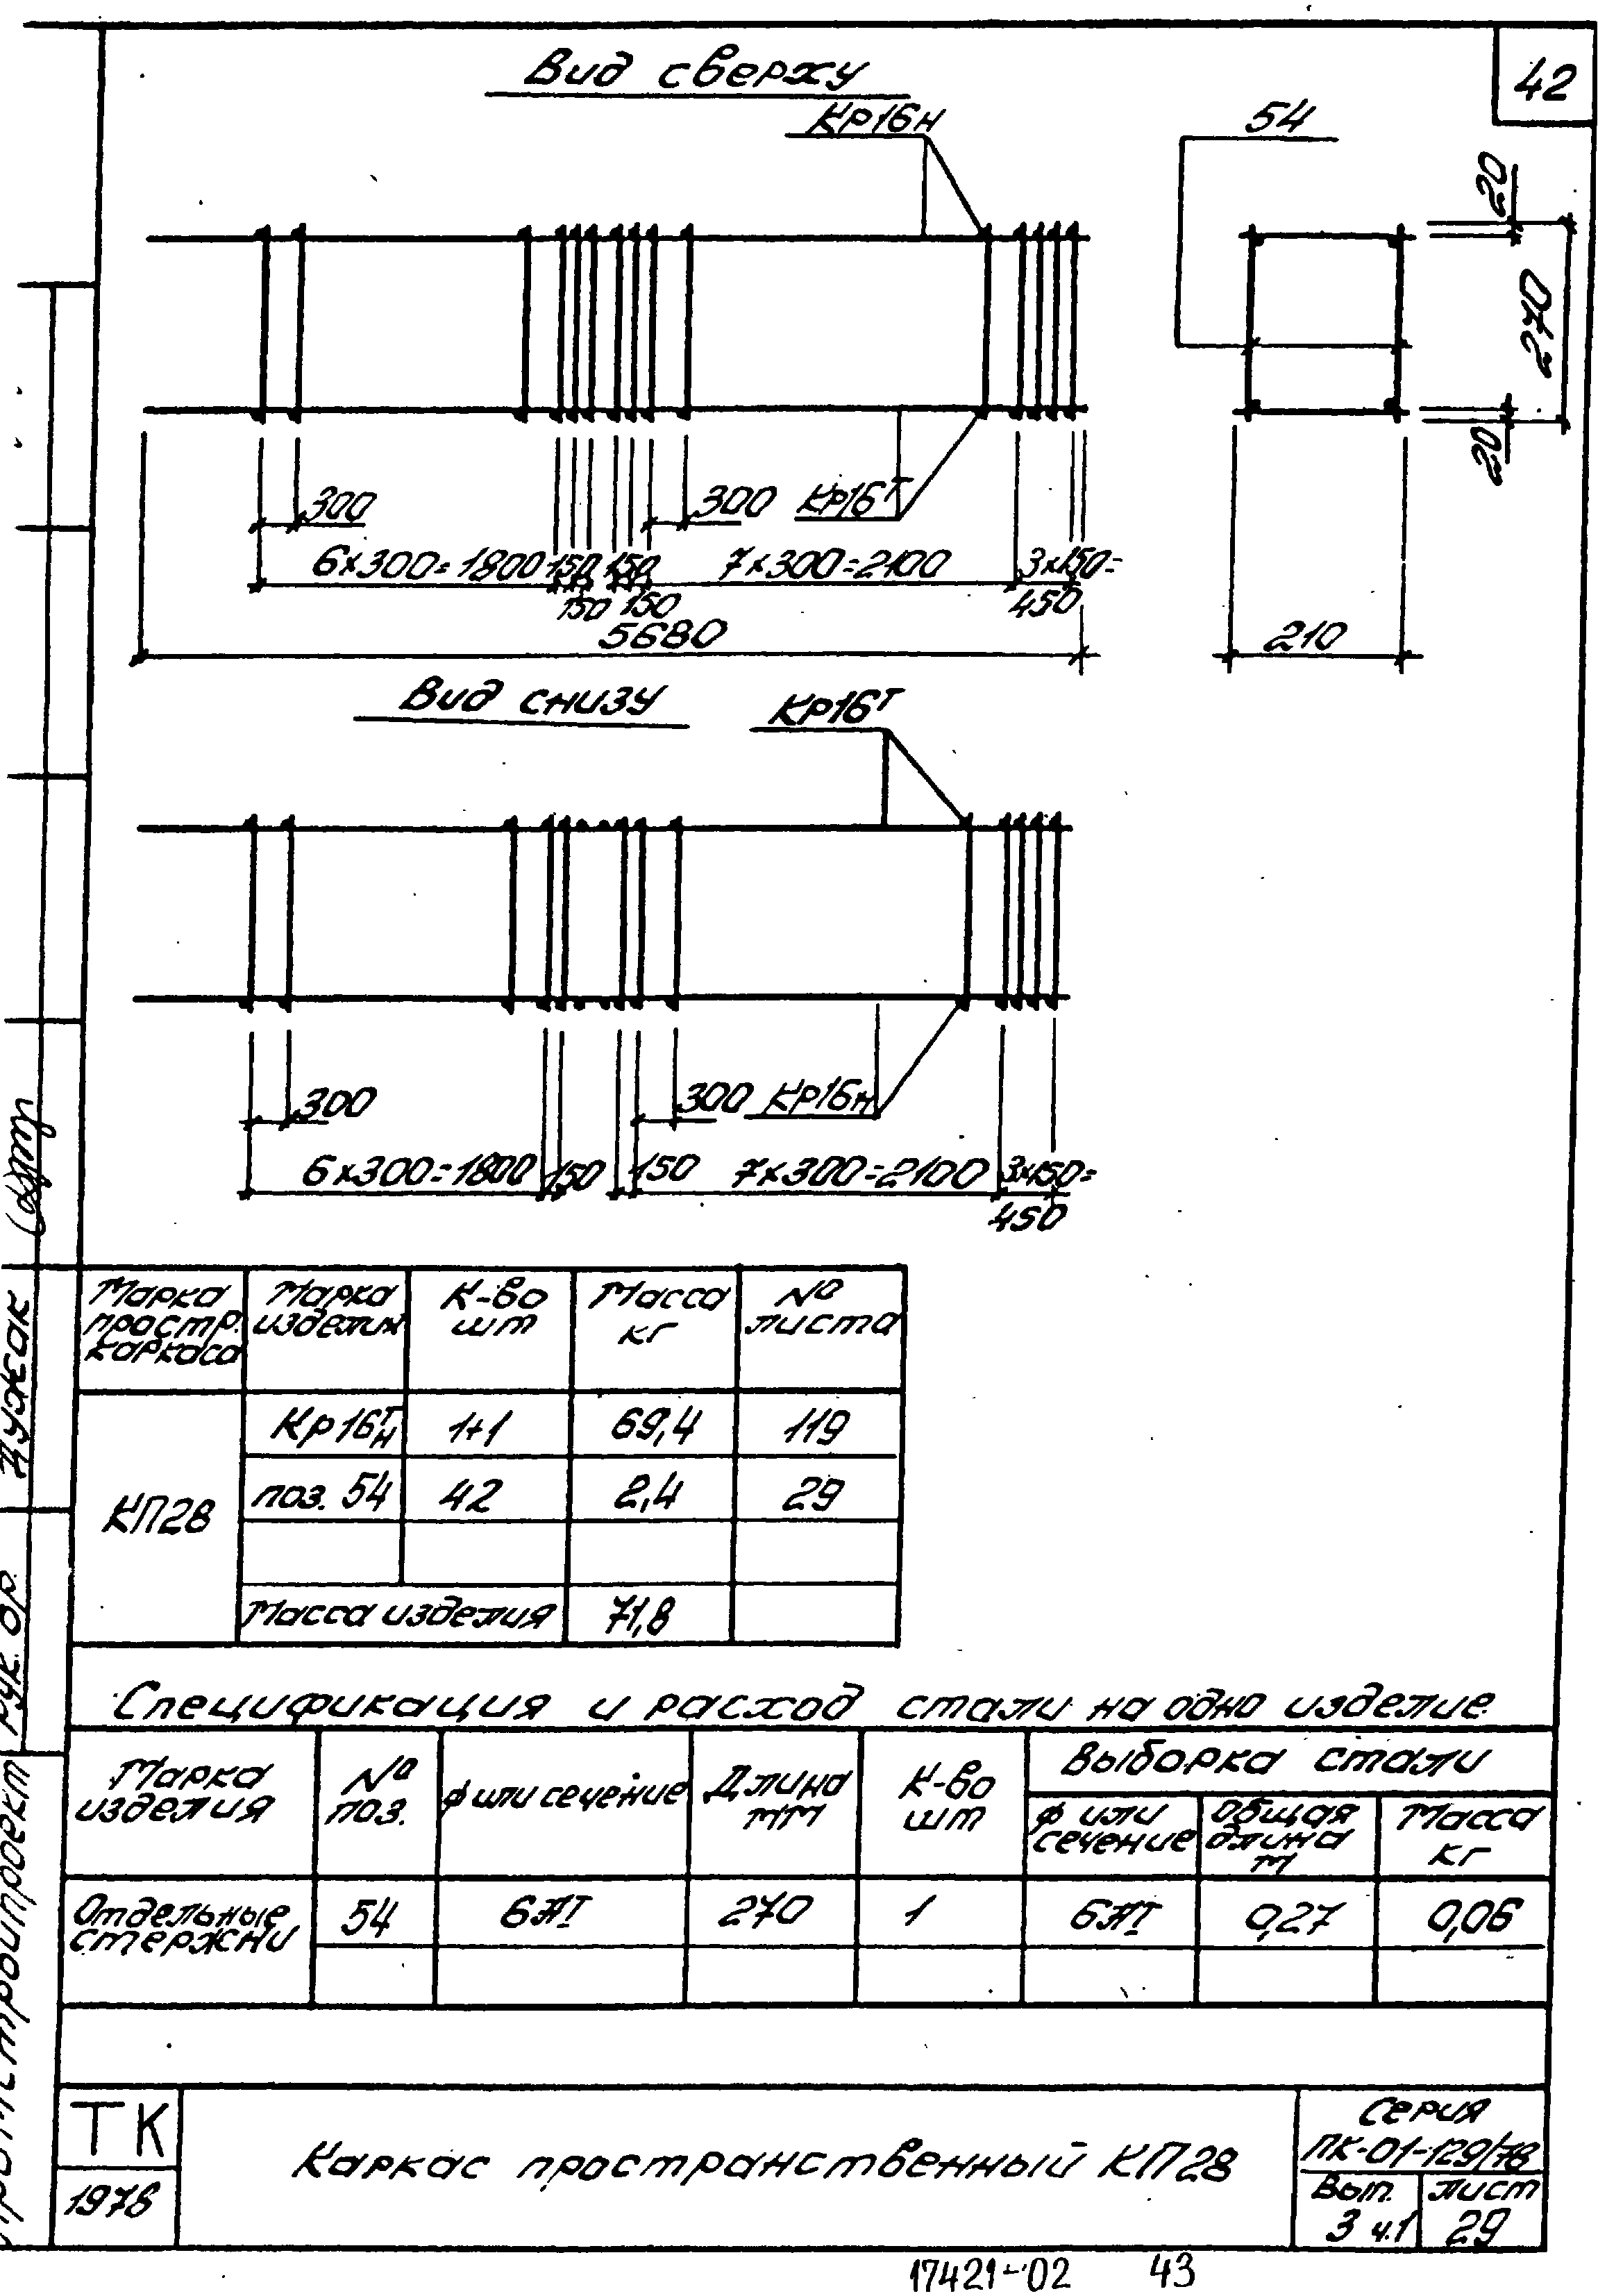 42
Вид сверху
Кр16н
54
20
270
20
300
300
Кр16т
6×300=1800
150
150
7×300=2100
3×150=
150
150
450
5680
210
Вид снизу
Кр16т
300
300
Кр16н
6×300=1800
150
150
7×300=2100
3×150=
450
Марка простр. каркаса
Марка изделия
К-во шт
Масса кг
№ листа
КП28
Кр16т/н 1+1 69,4 119
поз. 54 42 2,4 29
Масса изделия 71,8
Спецификация и расход стали на одно изделие
Марка изделия
№ поз.
ф или сечение
Длина мм
К-во шт
Выборка стали
ф или сечение
общая длина м
Масса кг
Отдельные стержни
54 6АI 270 1 6АI 0,27 0,06
ТК
1978
Каркас пространственный КП28
Серия
ПК-01-129/78
Вып.
3 ч.1
лист
29
17421-02 43
Рук. ор.